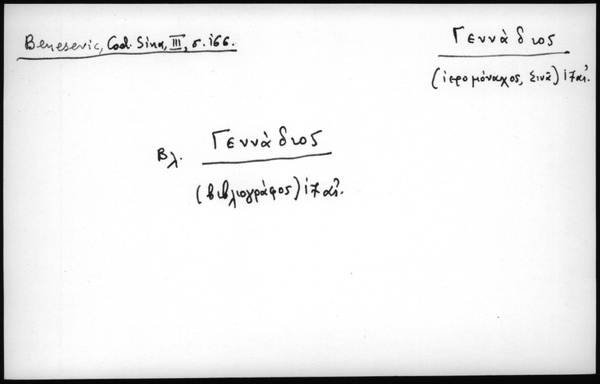 Benesevic, Cod. Sina, III, σ. 166.
Γεννάδιος
(ἱερομόναχος, Σινᾶ) 17 αἰ.
Βλ. Γεννάδιος
(βιβλιογράφος) 17 αἰ.